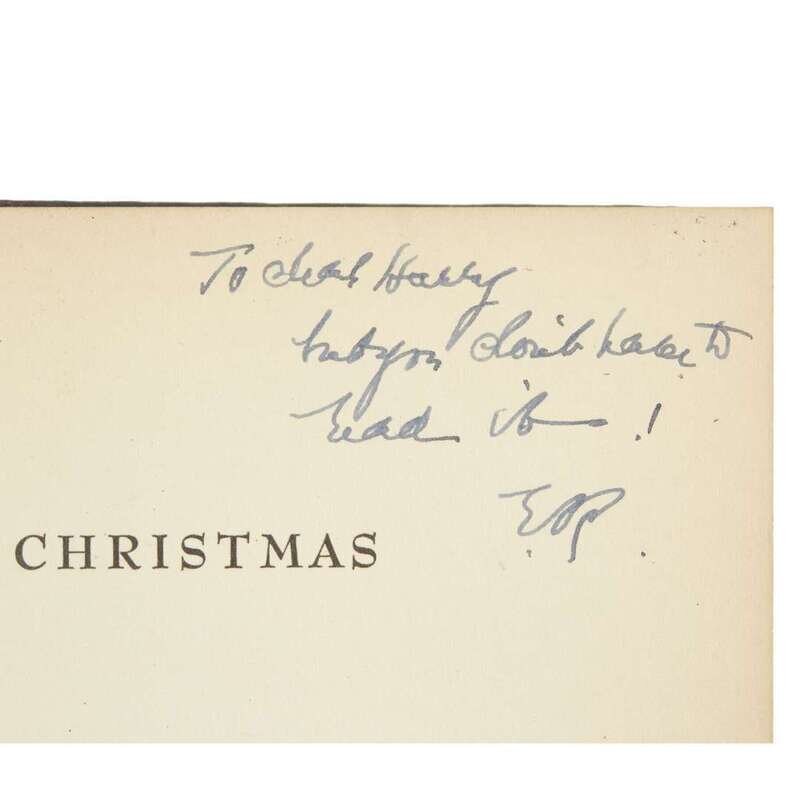 To dear Harry
but you don't have to
read it !
E.R.
CHRISTMAS